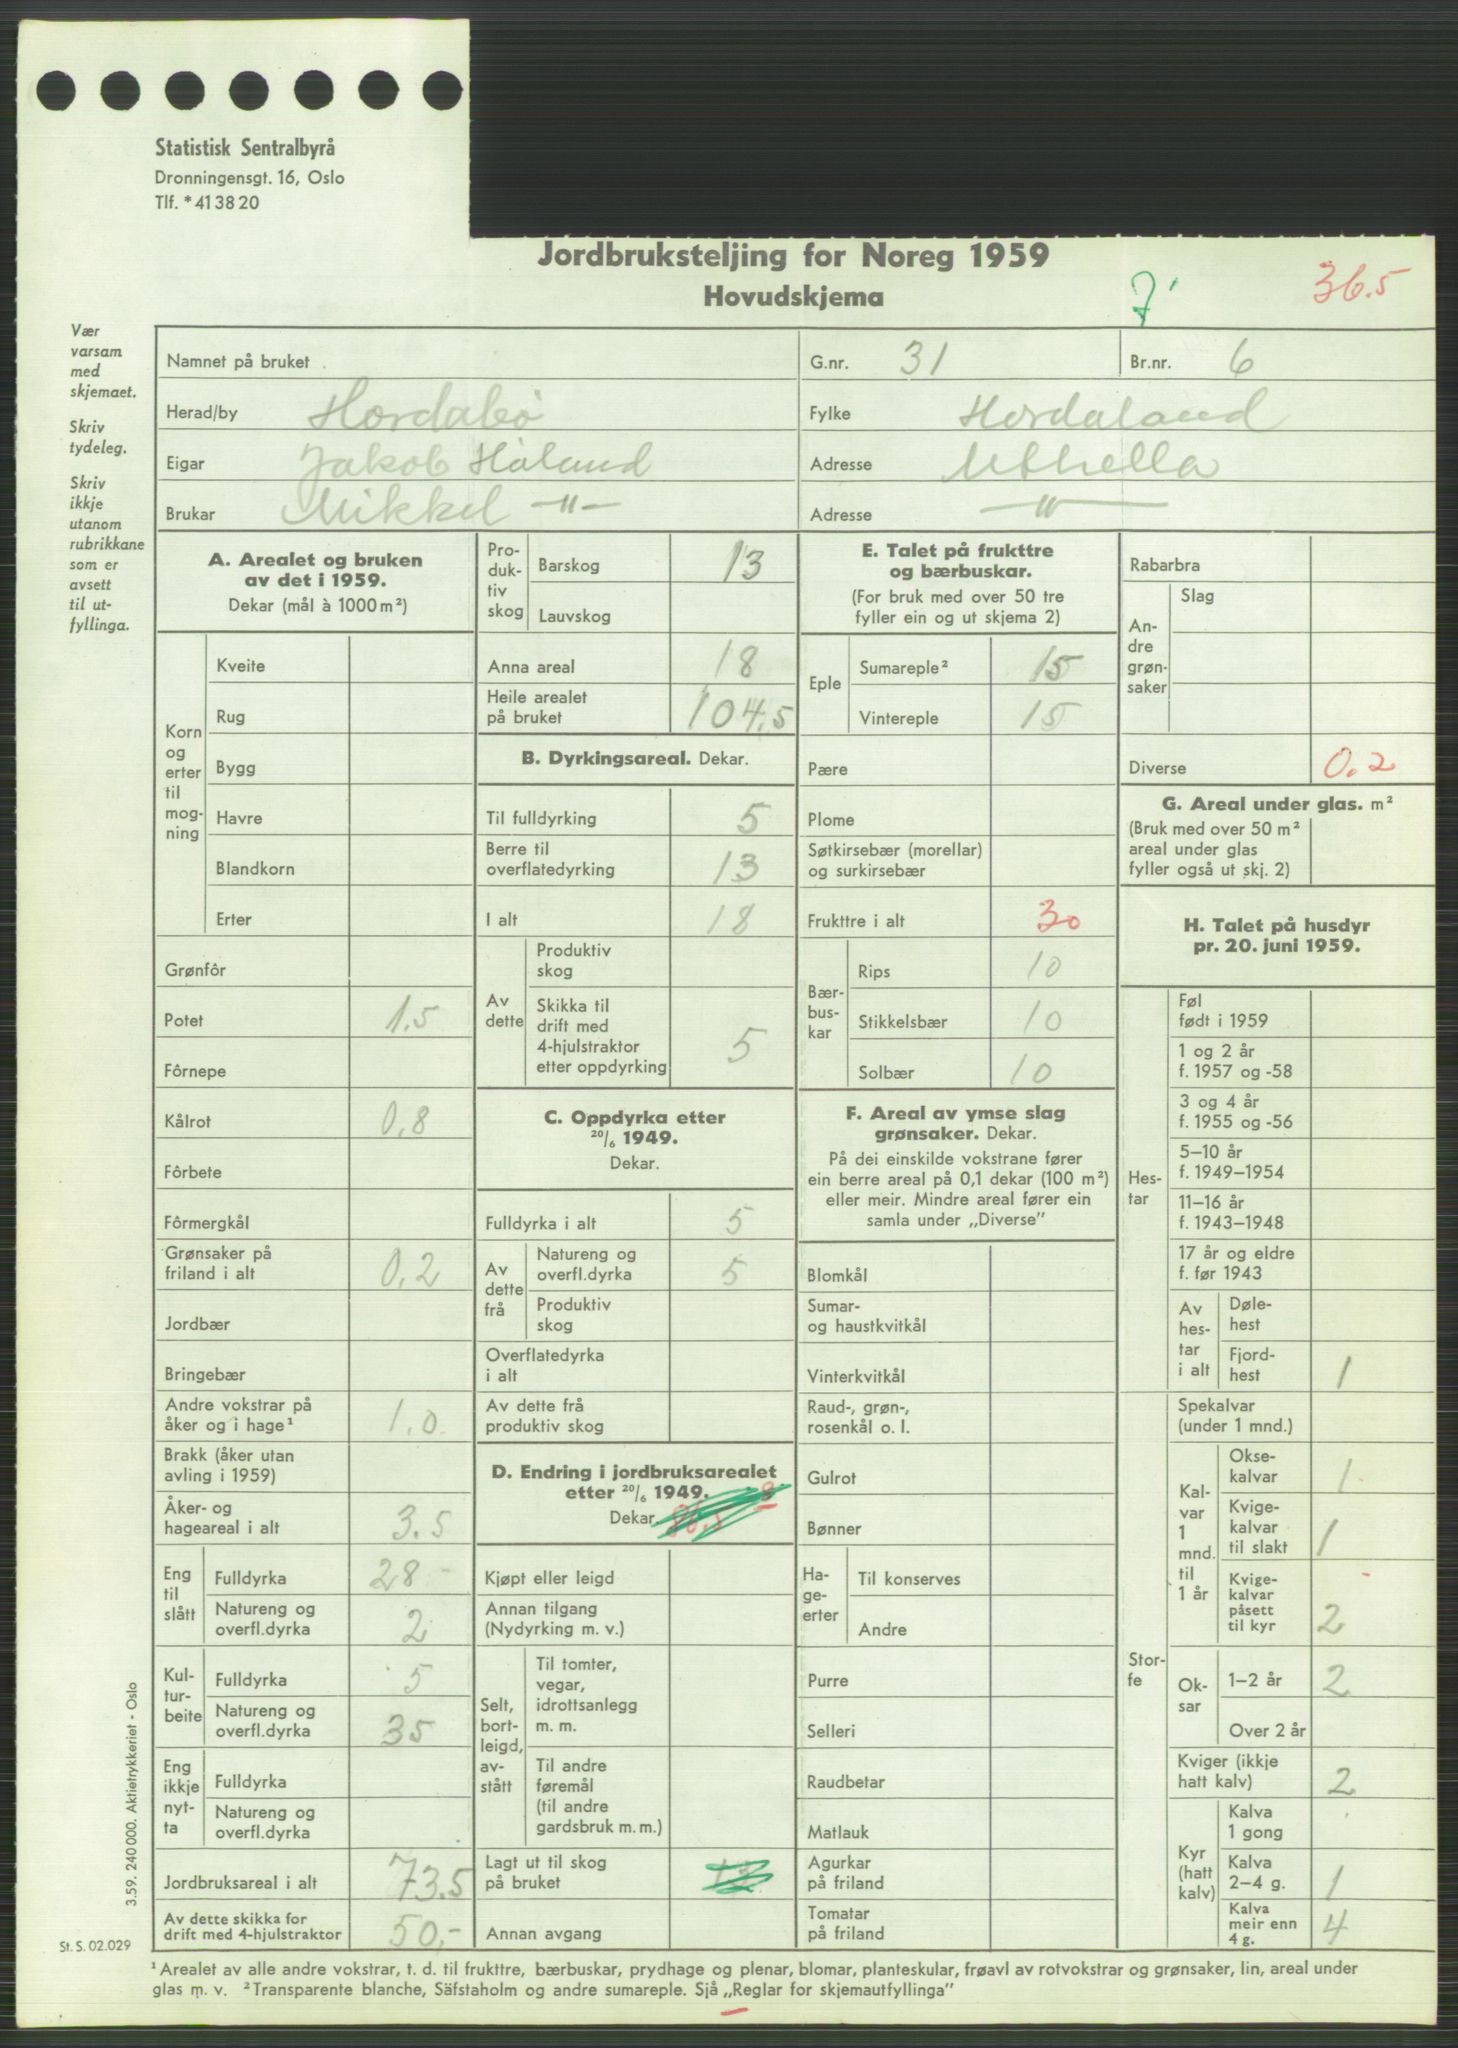 Statistisk Sentralbyrå
Dronningensgt. 16, Oslo
Tlf. * 41 38 20
Jordbruksteljing for Noreg 1959
Hovudskjema
7
36.5
Vær
varsam
med
skjemaet.
Skriv
tydeleg.
Skriv
ikkje
utanom
rubrikkane
som er
avsett
til ut-
fyllinga.
Namnet på bruket
G.nr. 31
Br.nr. 6
Herad/by Hordabø
Fylke Hordaland
Eigar Jakob Håland
Adresse Uthella
Brukar Mikkel —"—
Adresse —"—
A. Arealet og bruken
av det i 1959.
Dekar (mål à 1000 m²)
Korn
og
erter
til
mog-
ning
Kveite
Rug
Bygg
Havre
Blandkorn
Erter
Grønfôr
Potet 1.5
Fôrnepe
Kålrot 0,8
Fôrbete
Fôrmergkål
Grønsaker på
friland i alt 0,2
Jordbær
Bringebær
Andre vokstrar på
åker og i hage¹ 1.0
Brakk (åker utan
avling i 1959)
Åker- og
hageareal i alt 3.5
Eng
til
slått
Fulldyrka 28-
Natureng og
overfl.dyrka 2
Kul-
tur-
beite
Fulldyrka 5
Natureng og
overfl.dyrka 35
Eng
ikkje
nyt-
ta
Fulldyrka
Natureng og
overfl.dyrka
Jordbruksareal i alt 73.5
Av dette skikka for
drift med 4-hjulstraktor 50,-
Pro-
duk-
tiv
skog
Barskog 13
Lauvskog
Anna areal 18
Heile arealet
på bruket 104,5
B. Dyrkingsareal. Dekar.
Til fulldyrking 5
Berre til
overflatedyrking 13
I alt 18
Av
dette
Produktiv
skog
Skikka til
drift med
4-hjulstraktor
etter oppdyrking 5
C. Oppdyrka etter
20/6 1949.
Dekar.
Fulldyrka i alt 5
Av
dette
frå
Natureng og
overfl.dyrka 5
Produktiv
skog
Overflatedyrka
i alt
Av dette frå
produktiv skog
D. Endring i jordbruksarealet
etter 20/6 1949.
Dekar. 86.5 8
Kjøpt eller leigd
Annan tilgang
(Nydyrking m. v.)
Selt,
bort-
leigd,
av-
stått
Til tomter,
vegar,
idrottsanlegg
m. m.
Til andre
føremål
(til andre
gardsbruk m. m.)
Lagt ut til skog
på bruket 13
Annan avgang
E. Talet på frukttre
og bærbuskar.
(For bruk med over 50 tre
fyller ein og ut skjema 2)
Eple
Sumareple² 15
Vintereple 15
Pære
Plome
Søtkirsebær (morellar)
og surkirsebær
Frukttre i alt 30
Bær-
bus-
kar
Rips 10
Stikkelsbær 10
Solbær 10
F. Areal av ymse slag
grønsaker. Dekar.
På dei einskilde vokstrane fører
ein berre areal på 0,1 dekar (100 m²)
eller meir. Mindre areal fører ein
samla under „Diverse”
Blomkål
Sumar-
og haustkvitkål
Vinterkvitkål
Raud-, grøn-,
rosenkål o. l.
Gulrot
Bønner
Ha-
ge-
erter
Til konserves
Andre
Purre
Selleri
Raudbetar
Matlauk
Agurkar
på friland
Tomatar
på friland
Rabarbra
An-
dre
grøn-
saker
Slag
Diverse 0.2
G. Areal under glas. m²
(Bruk med over 50 m²
areal under glas
fyller også ut skj. 2)
H. Talet på husdyr
pr. 20. juni 1959.
Hes-
tar
Føl
født i 1959
1 og 2 år
f. 1957 og -58
3 og 4 år
f. 1955 og -56
5–10 år
f. 1949–1954
11–16 år
f. 1943–1948
17 år og eldre
f. før 1943
Av
hes-
tar
i alt
Døle-
hest
Fjord-
hest 1
Stor-
fe
Spekalvar
(under 1 mnd.)
Kal-
var
1
mnd.
til
1 år
Okse-
kalvar 1
Kvige-
kalvar
til slakt 1
Kvige-
kalvar
påsett
til kyr 2
Ok-
sar
1–2 år 2
Over 2 år
Kviger (ikkje
hatt kalv) 2
Kyr
(hatt
kalv)
Kalva
1 gong
Kalva
2–4 g. 1
Kalva
meir enn
4 g. 4
3.59. 240 000. Aktietrykkeriet - Oslo
St. S. 02.029
¹ Arealet av alle andre vokstrar, t. d. til frukttre, bærbuskar, prydhage og plenar, blomar, planteskular, frøavl av rotvokstrar og grønsaker, lin, areal under
glas m. v. ² Transparente blanche, Säfstaholm og andre sumareple. Sjå „Reglar for skjemautfyllinga”